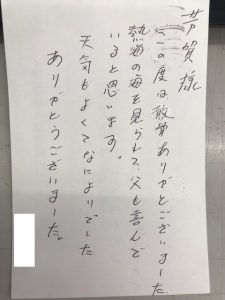 芳賀様
この度は散骨ありがとございました
熱海の海を見られて、父も喜んで
いると思います。
天気もよくてなによりでした
ありがとうございました。